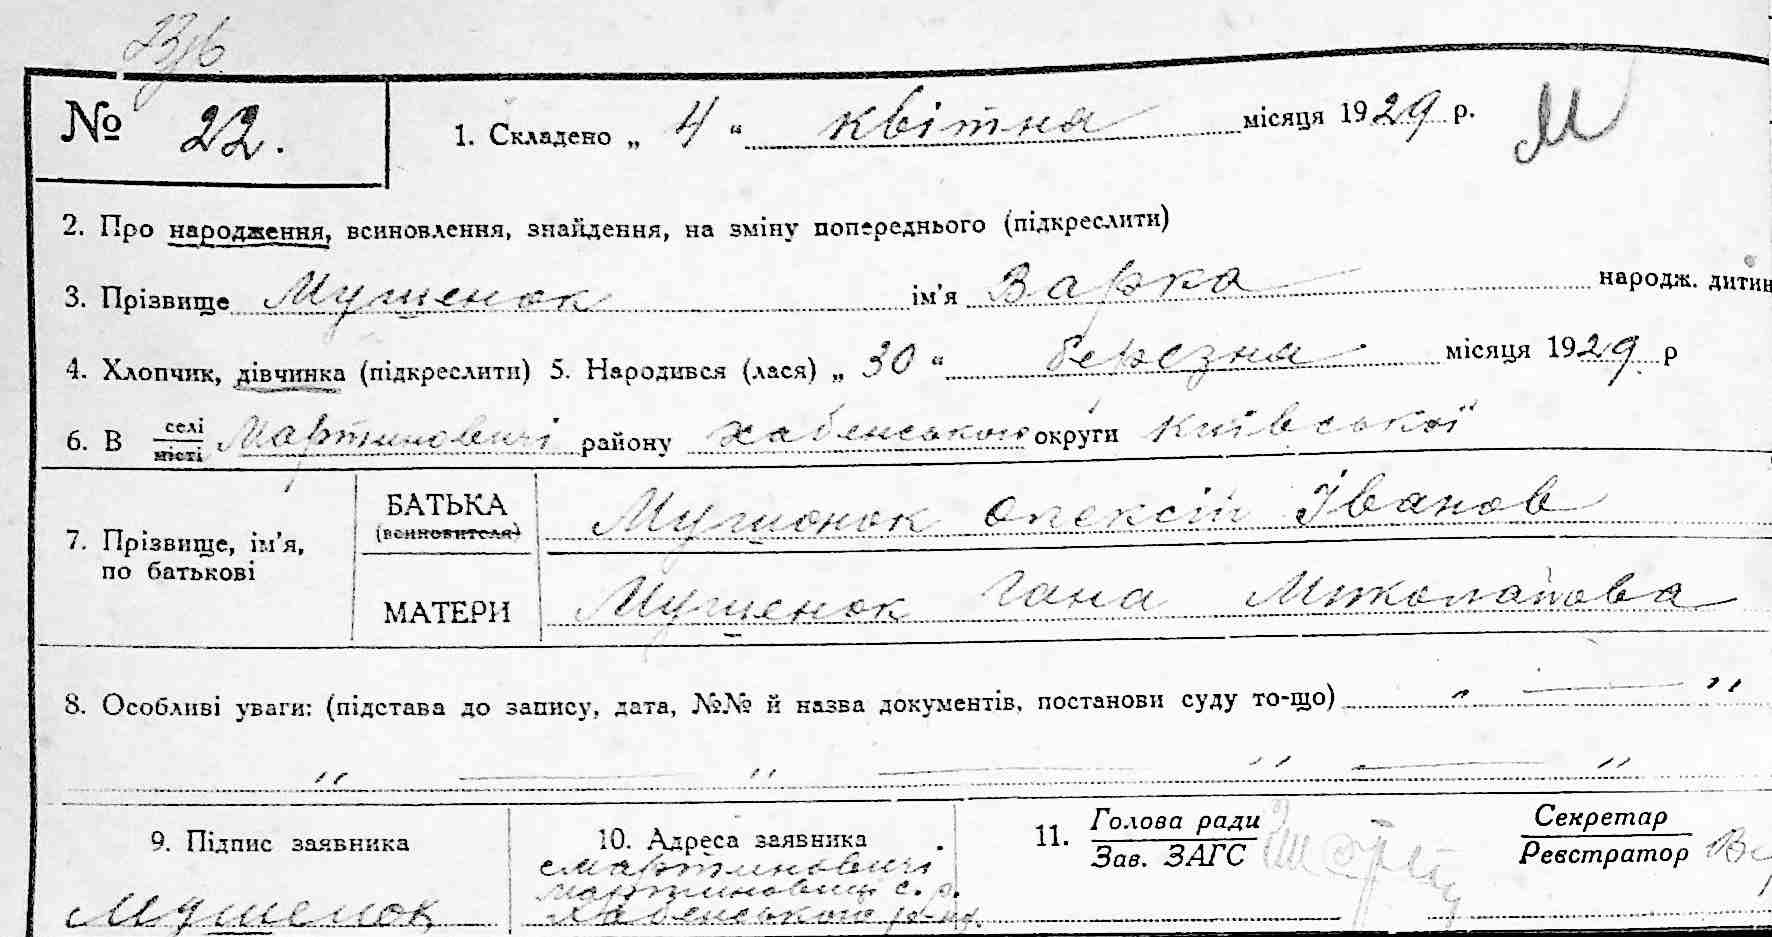 № 22.
1. Складено „ 4 “ квітня місяця 1929 р.
М
2. Про народження, всиновлення, знайдення, на зміну попереднього (підкреслити)
3. Прізвище Мушенок ім'я Варка народж. дитин
4. Хлопчик, дівчинка (підкреслити) 5. Народився (лася) „ 30 “ березня місяця 1929 р
6. В селі
місті Мартиновичі району Хабенського округи Київської
7. Прізвище, ім'я,
по батькові
БАТЬКА
(всиновителя)
Мушонок Олексій Іванов
МАТЕРИ
Мушенок Гана Миколаіова
8. Особливі уваги: (підстава до запису, дата, №№ й назва документів, постанови суду то-що) „ — „
„ — „ — „ — „
9. Підпис заявника
Мушенок
10. Адреса заявника
с Мартиновичі
Мартиновиц с. р.
Хабенського р-ну.
11. Голова ради
Зав. ЗАГС
Секретар
Реєстратор